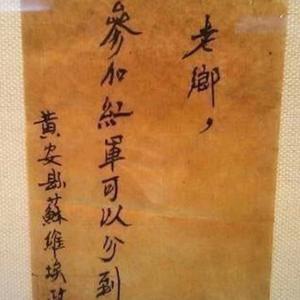 老鄉，
參加紅軍可以分到
黃安縣蘇維埃政